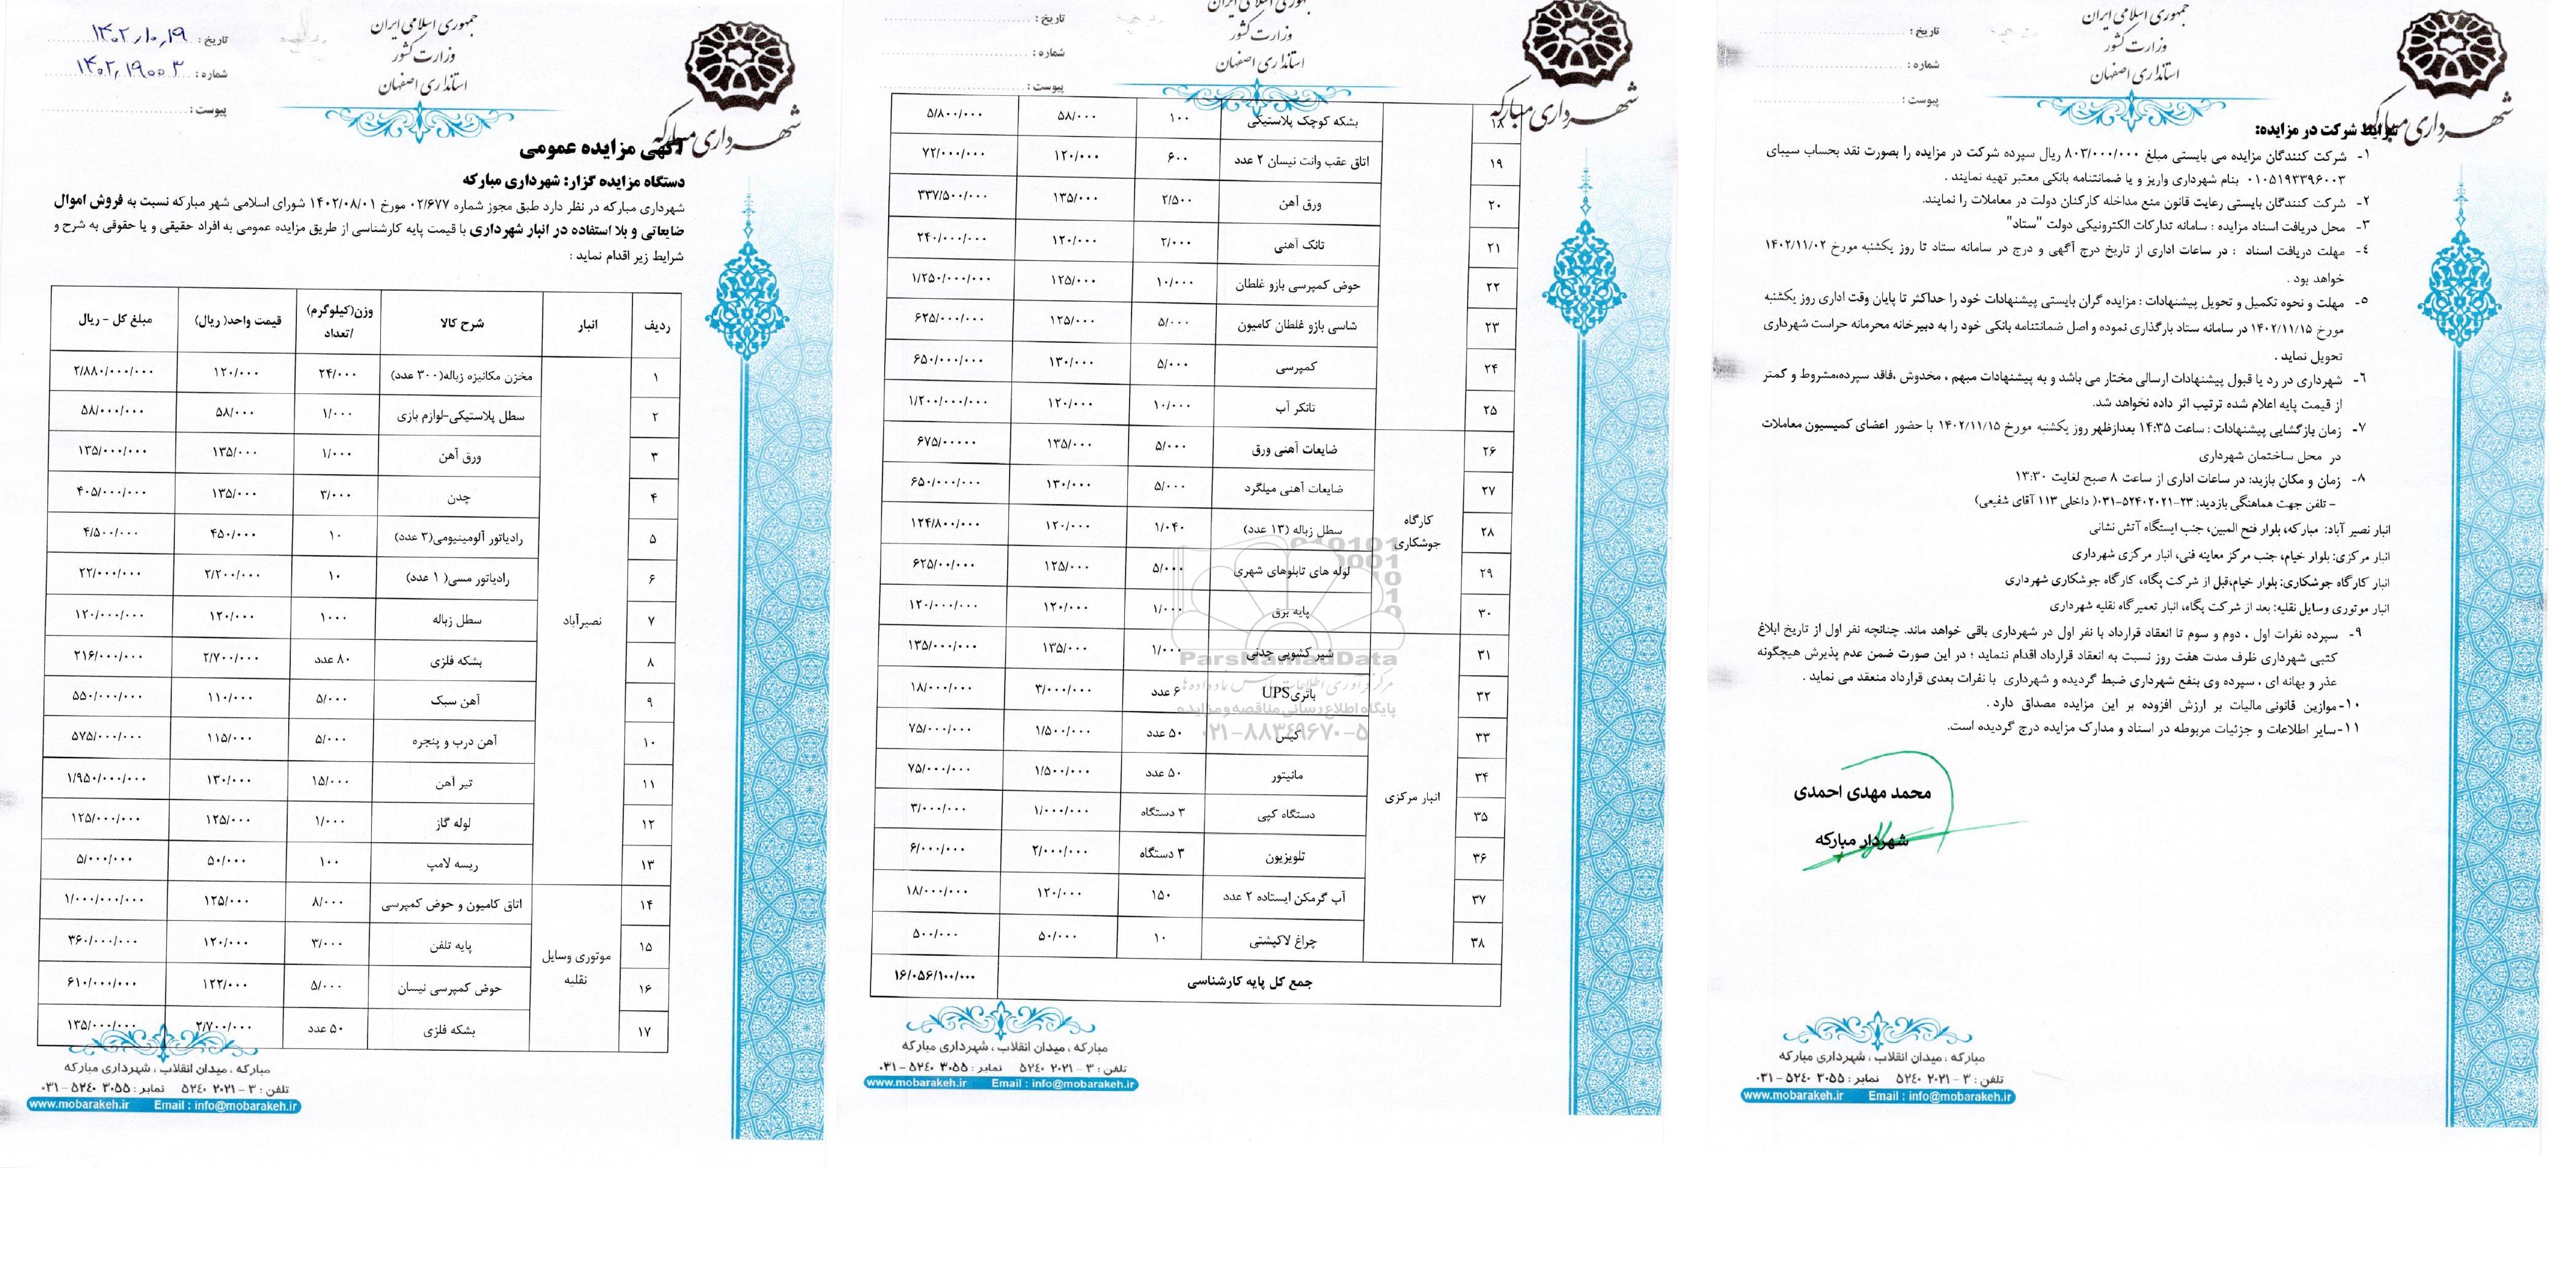 جمهوری اسلامی ایران
وزارت کشور
استانداری اصفهان
شهرداری مبارکه
تاریخ: ۱۴۰۲٫۱۰٫۱۹
شماره: ۱۴۰۲٫۱۹۰۰۳
پیوست:
آگهی مزایده عمومی
دستگاه مزایده گزار: شهرداری مبارکه
شهرداری مبارکه در نظر دارد طبق مجوز شماره ۰۲/۶۷۷ مورخ ۱۴۰۲/۰۸/۰۱ شورای اسلامی شهر مبارکه نسبت به فروش اموال
ضایعاتی و بلا استفاده در انبار شهرداری با قیمت پایه کارشناسی از طریق مزایده عمومی به افراد حقیقی و یا حقوقی به شرح و
شرایط زیر اقدام نماید :
ردیف انبار شرح کالا وزن(کیلوگرم) /تعداد قیمت واحد( ریال) مبلغ کل – ریال
نصیرآباد
۱ مخزن مکانیزه زباله(۳۰۰ عدد) ۲۴/۰۰۰ ۱۲۰/۰۰۰ ۲/۸۸۰/۰۰۰/۰۰۰
۲ سطل پلاستیکی-لوازم بازی ۱/۰۰۰ ۵۸/۰۰۰ ۵۸/۰۰۰/۰۰۰
۳ ورق آهن ۱/۰۰۰ ۱۳۵/۰۰۰ ۱۳۵/۰۰۰/۰۰۰
۴ چدن ۳/۰۰۰ ۱۳۵/۰۰۰ ۴۰۵/۰۰۰/۰۰۰
۵ رادیاتور آلومینیومی(۳ عدد) ۱۰ ۴۵۰/۰۰۰ ۴/۵۰۰/۰۰۰
۶ رادیاتور مسی( ۱ عدد) ۱۰ ۲/۲۰۰/۰۰۰ ۲۲/۰۰۰/۰۰۰
۷ سطل زباله ۱۰۰۰ ۱۲۰/۰۰۰ ۱۲۰/۰۰۰/۰۰۰
۸ بشکه فلزی ۸۰ عدد ۲/۷۰۰/۰۰۰ ۲۱۶/۰۰۰/۰۰۰
۹ آهن سبک ۵/۰۰۰ ۱۱۰/۰۰۰ ۵۵۰/۰۰۰/۰۰۰
۱۰ آهن درب و پنجره ۵/۰۰۰ ۱۱۵/۰۰۰ ۵۷۵/۰۰۰/۰۰۰
۱۱ تیر آهن ۱۵/۰۰۰ ۱۳۰/۰۰۰ ۱/۹۵۰/۰۰۰/۰۰۰
۱۲ لوله گاز ۱/۰۰۰ ۱۲۵/۰۰۰ ۱۲۵/۰۰۰/۰۰۰
۱۳ ریسه لامپ ۱۰۰ ۵۰/۰۰۰ ۵/۰۰۰/۰۰۰
موتوری وسایل نقلیه
۱۴ اتاق کامیون و حوض کمپرسی ۸/۰۰۰ ۱۲۵/۰۰۰ ۱/۰۰۰/۰۰۰/۰۰۰
۱۵ پایه تلفن ۳/۰۰۰ ۱۲۰/۰۰۰ ۳۶۰/۰۰۰/۰۰۰
۱۶ حوض کمپرسی نیسان ۵/۰۰۰ ۱۲۲/۰۰۰ ۶۱۰/۰۰۰/۰۰۰
۱۷ بشکه فلزی ۵۰ عدد ۲/۷۰۰/۰۰۰ ۱۳۵/۰۰۰/۰۰۰
مبارکه ، میدان انقلاب ، شهرداری مبارکه
تلفن : ۳ - ۲۰۲۱ ۵۲۴۰ نمابر : ۳۰۵۵ ۵۲۴۰ - ۰۳۱
www.mobarakeh.ir Email : info@mobarakeh.ir
جمهوری اسلامی ایران
وزارت کشور
استانداری اصفهان
شهرداری مبارکه
تاریخ :
شماره :
پیوست :
۱۸ بشکه کوچک پلاستیکی ۱۰۰ ۵۸/۰۰۰ ۵/۸۰۰/۰۰۰
۱۹ اتاق عقب وانت نیسان ۲ عدد ۶۰۰ ۱۲۰/۰۰۰ ۷۲/۰۰۰/۰۰۰
۲۰ ورق آهن ۲/۵۰۰ ۱۳۵/۰۰۰ ۳۳۷/۵۰۰/۰۰۰
۲۱ تانک آهنی ۲/۰۰۰ ۱۲۰/۰۰۰ ۲۴۰/۰۰۰/۰۰۰
۲۲ حوض کمپرسی بازو غلطان ۱۰/۰۰۰ ۱۲۵/۰۰۰ ۱/۲۵۰/۰۰۰/۰۰۰
۲۳ شاسی بازو غلطان کامیون ۵/۰۰۰ ۱۲۵/۰۰۰ ۶۲۵/۰۰۰/۰۰۰
۲۴ کمپرسی ۵/۰۰۰ ۱۳۰/۰۰۰ ۶۵۰/۰۰۰/۰۰۰
۲۵ تانکر آب ۱۰/۰۰۰ ۱۲۰/۰۰۰ ۱/۲۰۰/۰۰۰/۰۰۰
کارگاه جوشکاری
۲۶ ضایعات آهنی ورق ۵/۰۰۰ ۱۳۵/۰۰۰ ۶۷۵/۰۰۰۰۰
۲۷ ضایعات آهنی میلگرد ۵/۰۰۰ ۱۳۰/۰۰۰ ۶۵۰/۰۰۰/۰۰۰
۲۸ سطل زباله (۱۳ عدد) ۱/۰۴۰ ۱۲۰/۰۰۰ ۱۲۴/۸۰۰/۰۰۰
۲۹ لوله های تابلوهای شهری ۵/۰۰۰ ۱۲۵/۰۰۰ ۶۲۵/۰۰/۰۰۰
۳۰ پایه برق ۱/۰۰۰ ۱۲۰/۰۰۰ ۱۲۰/۰۰۰/۰۰۰
انبار مرکزی
۳۱ شیر کشویی چدنی ۱/۰۰۰ ۱۳۵/۰۰۰ ۱۳۵/۰۰۰/۰۰۰
۳۲ باتری UPS ۶ عدد ۳/۰۰۰/۰۰۰ ۱۸/۰۰۰/۰۰۰
۳۳ کیس ۵۰ عدد ۱/۵۰۰/۰۰۰ ۷۵/۰۰۰/۰۰۰
۳۴ مانیتور ۵۰ عدد ۱/۵۰۰/۰۰۰ ۷۵/۰۰۰/۰۰۰
۳۵ دستگاه کپی ۳ دستگاه ۱/۰۰۰/۰۰۰ ۳/۰۰۰/۰۰۰
۳۶ تلویزیون ۳ دستگاه ۲/۰۰۰/۰۰۰ ۶/۰۰۰/۰۰۰
۳۷ آب گرمکن ایستاده ۲ عدد ۱۵۰ ۱۲۰/۰۰۰ ۱۸/۰۰۰/۰۰۰
۳۸ چراغ لاکپشتی ۱۰ ۵۰/۰۰۰ ۵۰۰/۰۰۰
جمع کل پایه کارشناسی ۱۶/۰۵۶/۱۰۰/۰۰۰
ParsNamadData
پایگاه اطلاع رسانی مناقصه و مزایده
۰۲۱-۸۸۳۴۹۶۷۰-۵
مبارکه ، میدان انقلاب ، شهرداری مبارکه
تلفن : ۳ - ۲۰۲۱ ۵۲۴۰ نمابر : ۳۰۵۵ ۵۲۴۰ - ۰۳۱
www.mobarakeh.ir Email : info@mobarakeh.ir
جمهوری اسلامی ایران
وزارت کشور
استانداری اصفهان
شهرداری مبارکه
تاریخ :
شماره :
پیوست :
شرایط شرکت در مزایده:
۱- شرکت کنندگان مزایده می بایستی مبلغ ۸۰۳/۰۰۰/۰۰۰ ریال سپرده شرکت در مزایده را بصورت نقد بحساب سیبای
۰۱۰۵۱۹۳۳۹۶۰۰۳ بنام شهرداری واریز و یا ضمانتنامه بانکی معتبر تهیه نمایند .
۲- شرکت کنندگان بایستی رعایت قانون منع مداخله کارکنان دولت در معاملات را نمایند.
۳- محل دریافت اسناد مزایده : سامانه تدارکات الکترونیکی دولت "ستاد"
۴- مهلت دریافت اسناد : در ساعات اداری از تاریخ درج آگهی و درج در سامانه ستاد تا روز یکشنبه مورخ ۱۴۰۲/۱۱/۰۲
خواهد بود .
۵- مهلت و نحوه تکمیل و تحویل پیشنهادات : مزایده گران بایستی پیشنهادات خود را حداکثر تا پایان وقت اداری روز یکشنبه
مورخ ۱۴۰۲/۱۱/۱۵ در سامانه ستاد بارگذاری نموده و اصل ضمانتنامه بانکی خود را به دبیرخانه محرمانه حراست شهرداری
تحویل نماید .
۶- شهرداری در رد یا قبول پیشنهادات ارسالی مختار می باشد و به پیشنهادات مبهم ، مخدوش ،فاقد سپرده،مشروط و کمتر
از قیمت پایه اعلام شده ترتیب اثر داده نخواهد شد.
۷- زمان بازگشایی پیشنهادات : ساعت ۱۴:۳۵ بعدازظهر روز یکشنبه مورخ ۱۴۰۲/۱۱/۱۵ با حضور اعضای کمیسیون معاملات
در محل ساختمان شهرداری
۸- زمان و مکان بازید: در ساعات اداری از ساعت ۸ صبح لغایت ۱۳:۳۰
– تلفن جهت هماهنگی بازدید: ۲۳-۵۲۴۰۲۰۲۱-۰۳۱( داخلی ۱۱۳ آقای شفیعی)
انبار نصیر آباد: مبارکه، بلوار فتح المبین، جنب ایستگاه آتش نشانی
انبار مرکزی: بلوار خیام، جنب مرکز معاینه فنی، انبار مرکزی شهرداری
انبار کارگاه جوشکاری: بلوار خیام،قبل از شرکت پگاه، کارگاه جوشکاری شهرداری
انبار موتوری وسایل نقلیه: بعد از شرکت پگاه، انبار تعمیرگاه نقلیه شهرداری
۹- سپرده نفرات اول ، دوم و سوم تا انعقاد قرارداد با نفر اول در شهرداری باقی خواهد ماند. چنانچه نفر اول از تاریخ ابلاغ
کتبی شهرداری ظرف مدت هفت روز نسبت به انعقاد قرارداد اقدام ننماید ؛ در این صورت ضمن عدم پذیرش هیچگونه
عذر و بهانه ای ، سپرده وی بنفع شهرداری ضبط گردیده و شهرداری با نفرات بعدی قرارداد منعقد می نماید .
۱۰- موازین قانونی مالیات بر ارزش افزوده بر این مزایده مصداق دارد .
۱۱- سایر اطلاعات و جزئیات مربوطه در اسناد و مدارک مزایده درج گردیده است.
محمد مهدی احمدی
شهردار مبارکه
مبارکه ، میدان انقلاب ، شهرداری مبارکه
تلفن : ۳ - ۲۰۲۱ ۵۲۴۰ نمابر : ۳۰۵۵ ۵۲۴۰ - ۰۳۱
www.mobarakeh.ir Email : info@mobarakeh.ir